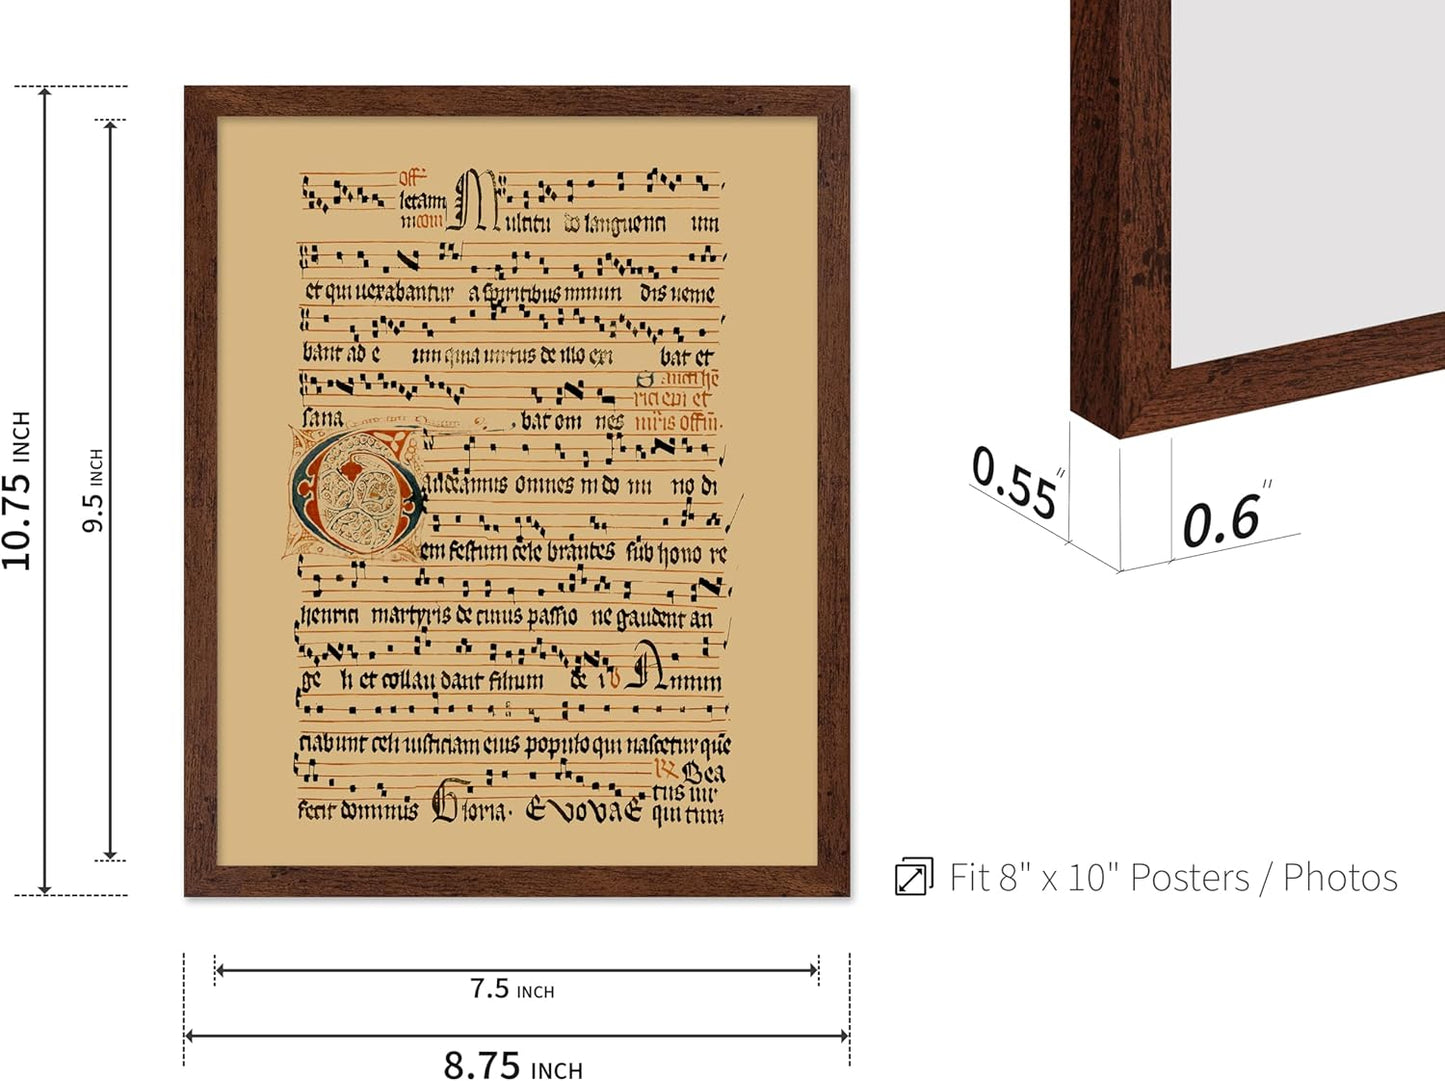 10.75 INCH
9.5 INCH
off
letam
Multitu do languenti um
et qui uexabantur a spiritibus inmun dis uenie
bant ad e um quia uirtus de illo exi bat et
sana bat om nes
Gaudeamus omnes in do mi no di
em festum cele brantes sub hono re
henrici martyris de cuius passio ne gaudent an
ge li et collau dant filium de i
Annun
ciabunt celi iusticiam eius populo qui nascetur que
Bea
tus uir
fecit dominus Gloria. EVOVAE qui tim
7.5 INCH
8.75 INCH
0.55"
0.6"
Fit 8" x 10" Posters / Photos